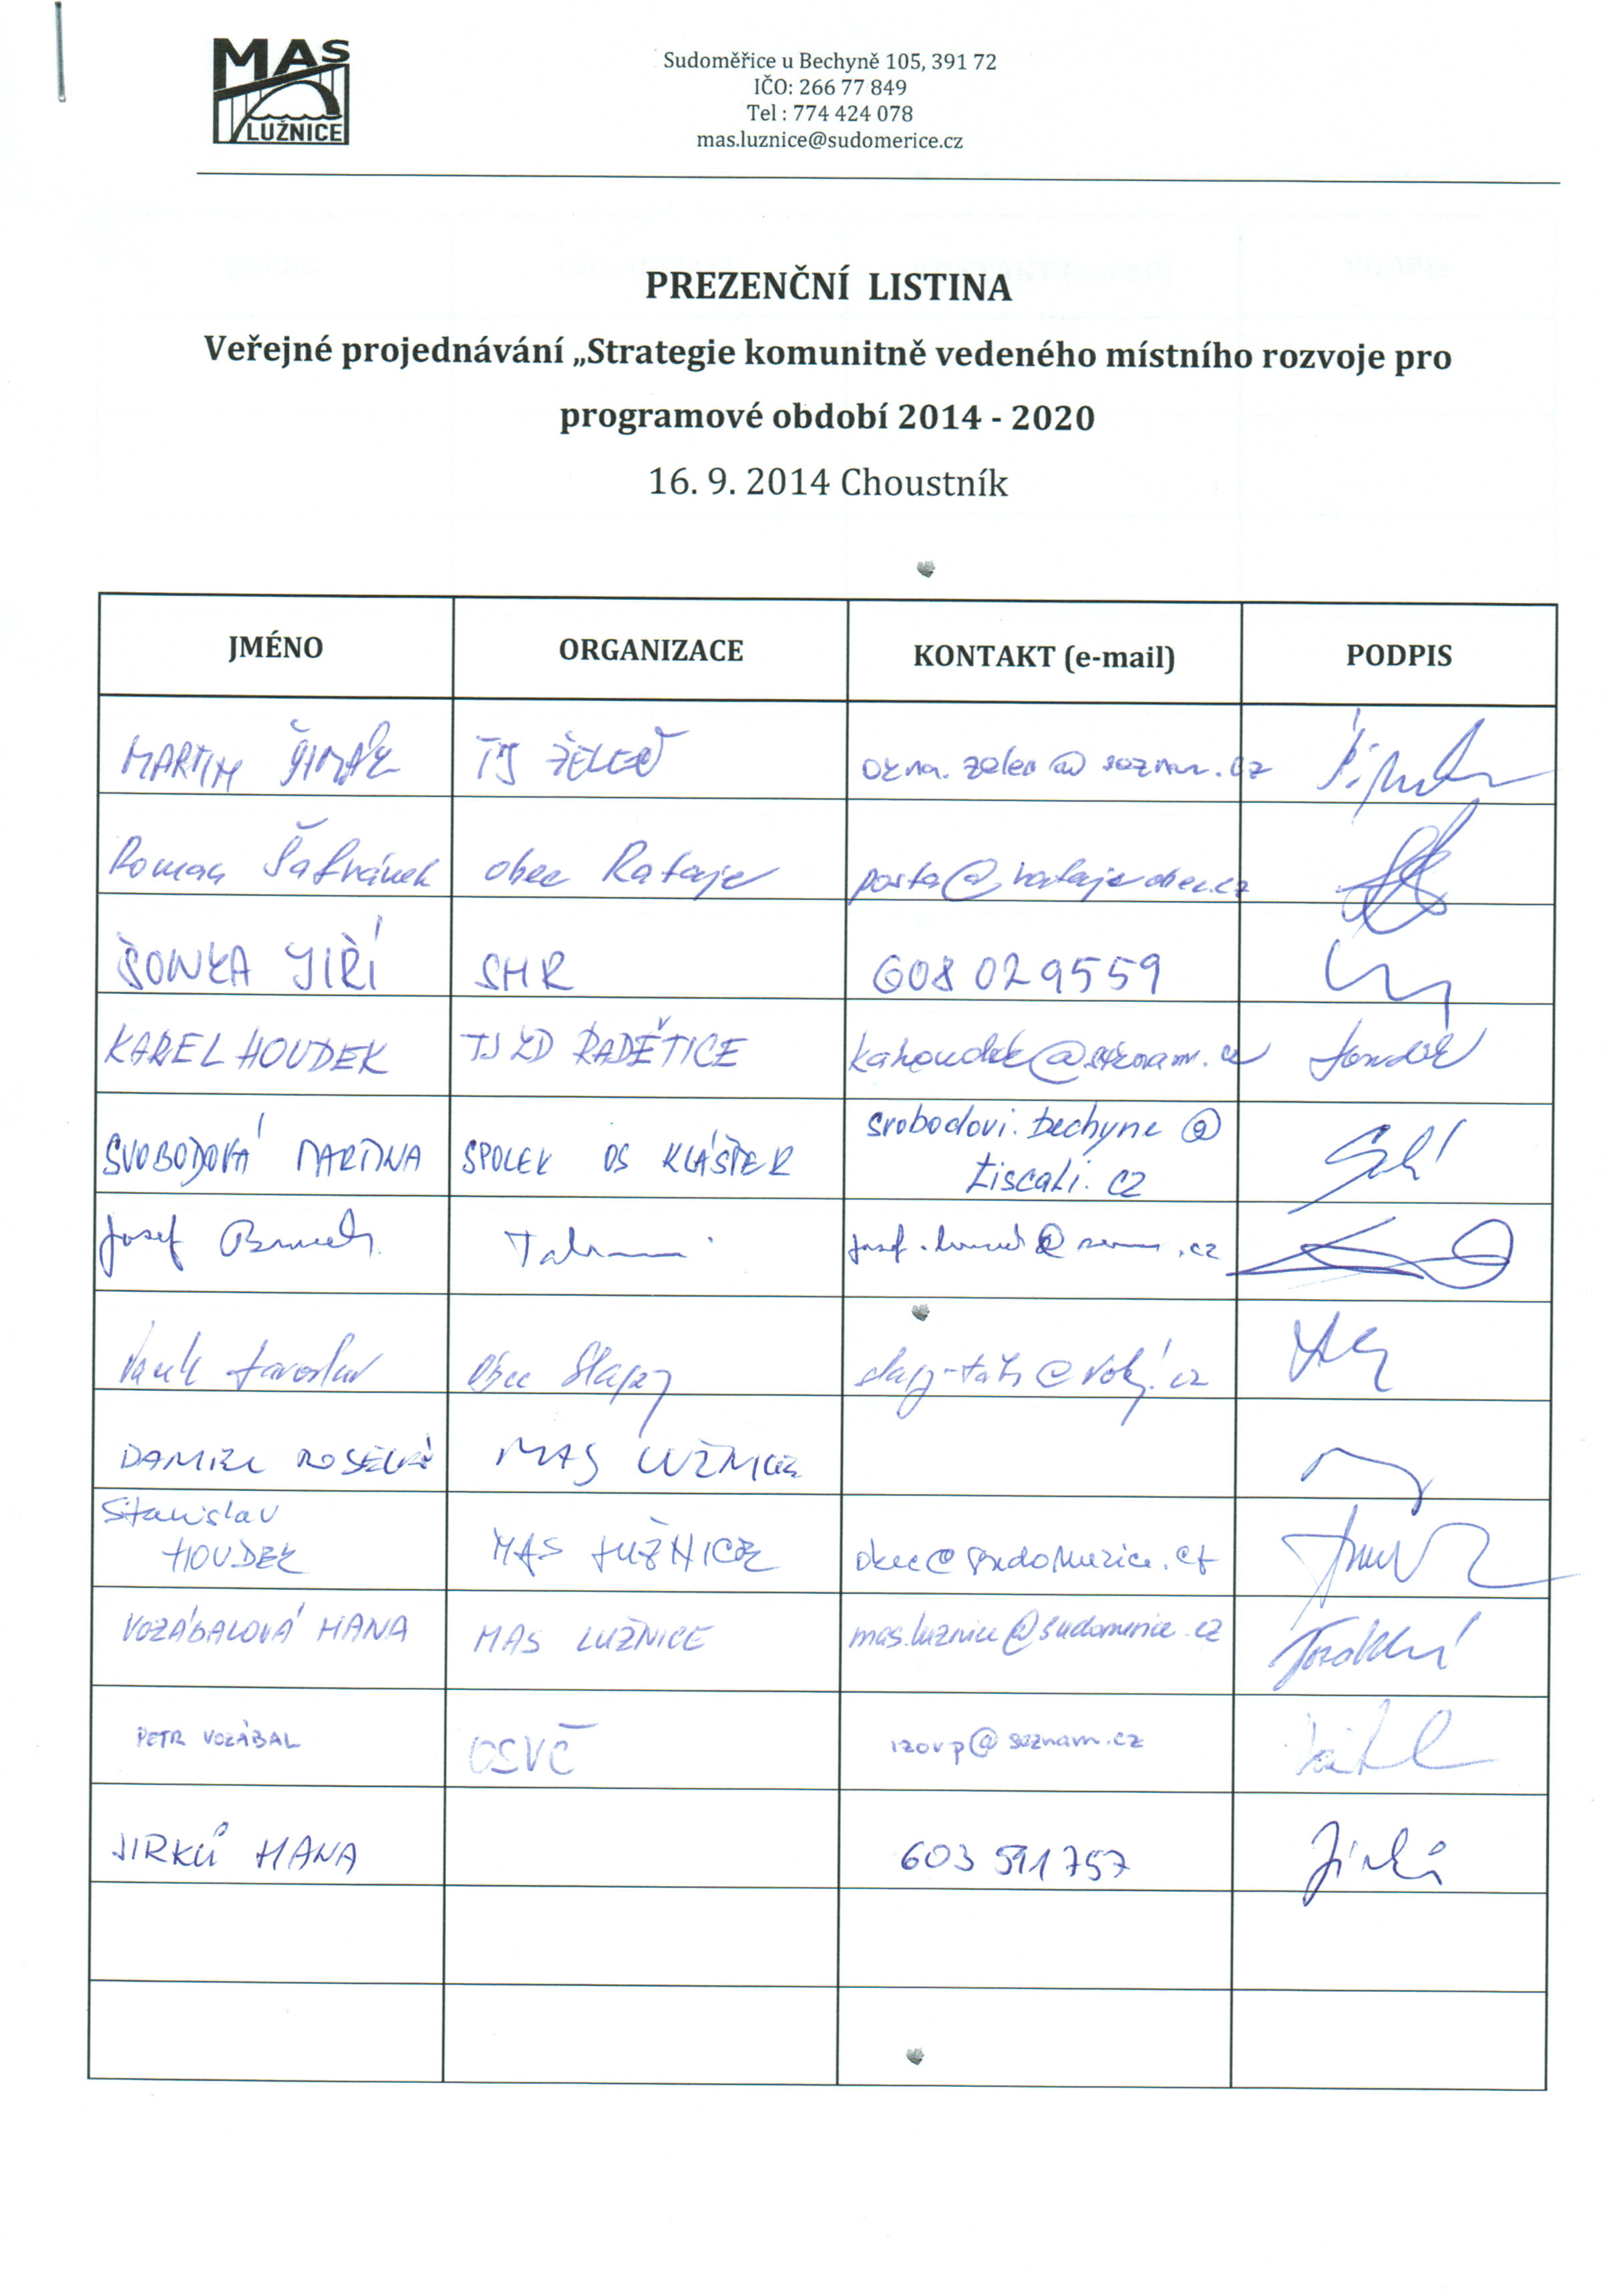 MAS
LUŽNICE
Sudoměřice u Bechyně 105, 391 72
IČO: 266 77 849
Tel : 774 424 078
mas.luznice@sudomerice.cz
PREZENČNÍ LISTINA
Veřejné projednávání „Strategie komunitně vedeného místního rozvoje pro
programové období 2014 - 2020
16. 9. 2014 Choustník
JMÉNO ORGANIZACE KONTAKT (e-mail) PODPIS
MARTIN ŠIMÁK TJ ŽELEČ
Roman Šafránek obec Rataje posta@ratajeobec.cz
ŠONKA JIŘÍ SHR 608 029559
KAREL HOUDEK TJ ZD RADĚTICE kahoudek@seznam.cz
SVOBODOVÁ MARTINA SPOLEK OS KLÁŠTER svobodovi.bechyne@
tiscali.cz
Josef
Jaroslav Obec Slapy
DANIEL MAS LUŽNICE
Stanislav
HOUDEK MAS LUŽNICE obec@sudomerice.cz
VOZÁBALOVÁ HANA MAS LUŽNICE mas.luznice@sudomerice.cz
PETR VOZÁBAL OSVČ izovp@seznam.cz
JIRKŮ HANA 603 591 757 Jirků